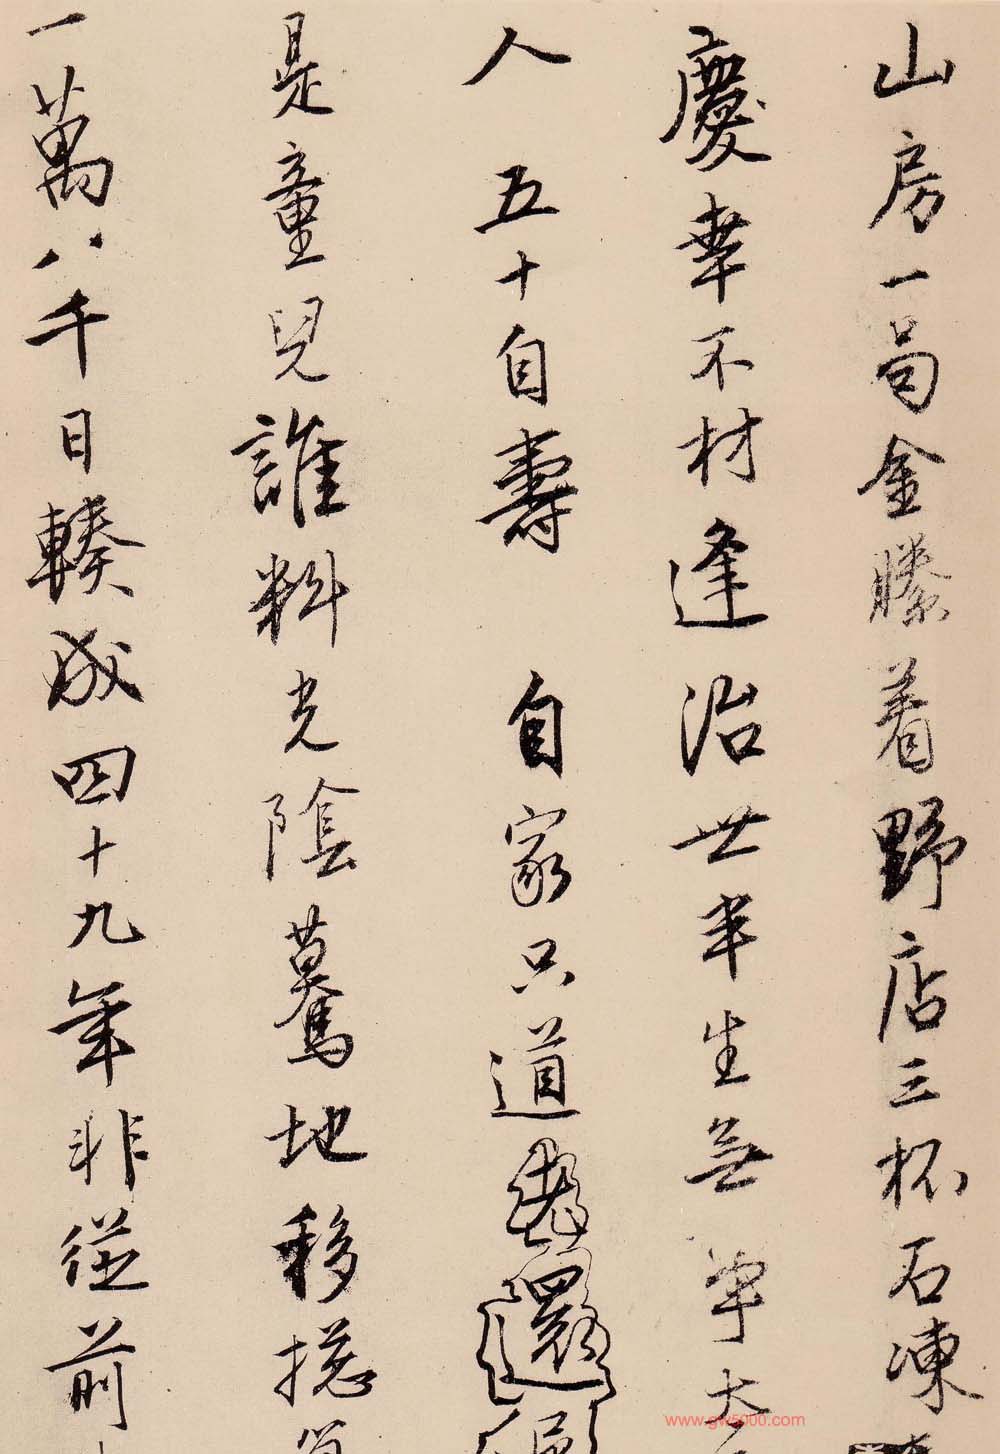 山房一局金縢着野店三杯石凍
慶幸不材逢治世半生無事太
人 五十自壽 自家只道
是童兒誰料光陰驀地移揔
一萬八千日輳成四十九年非從前
www.gw5000.com